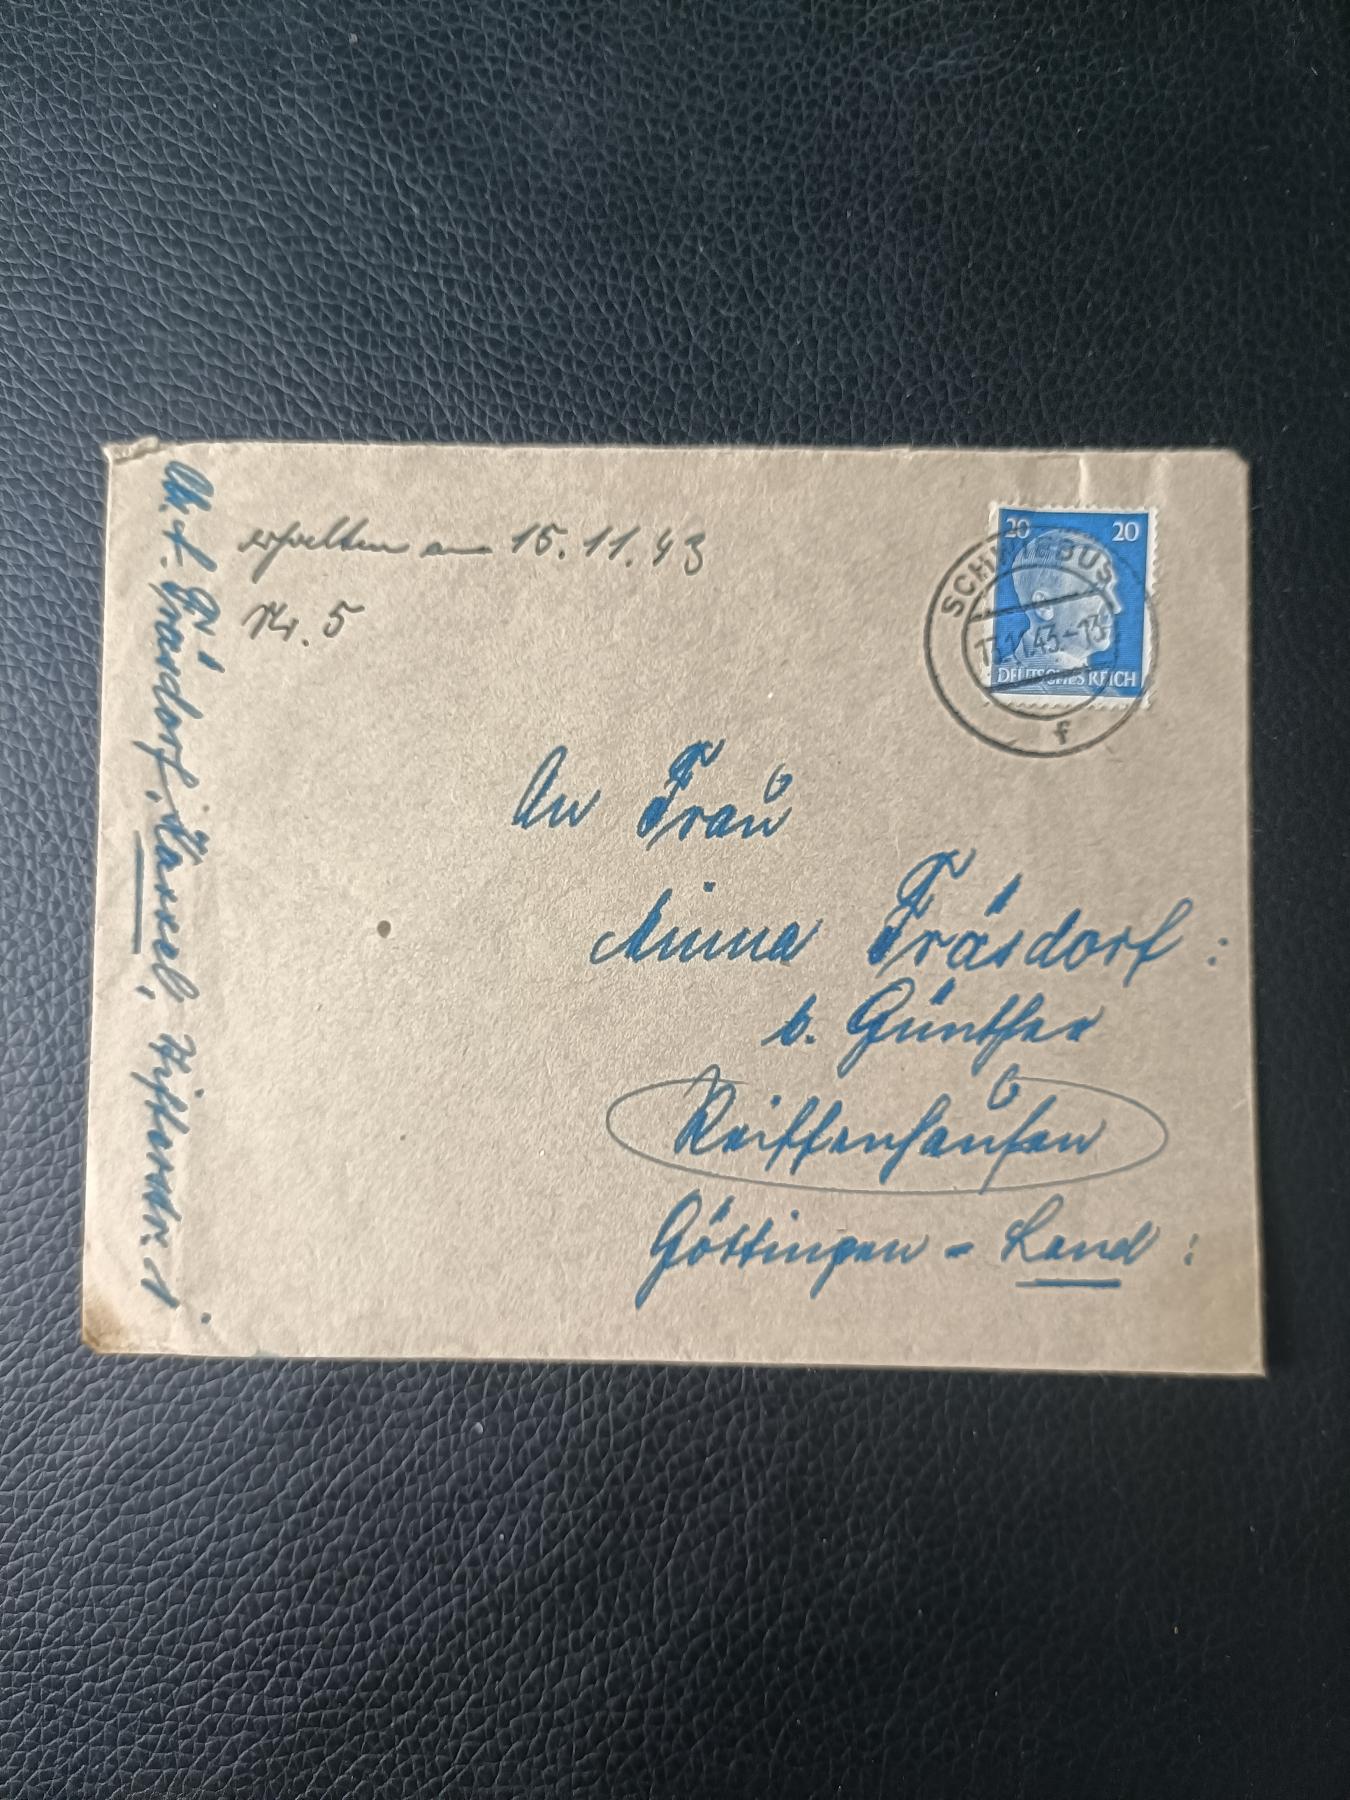 erhalten am 15.11.43
Nr. 5
20 20
SCHWIEBUS
13.11.43.-13
DEUTSCHES REICH
f
An Frau
Minna Fräsdorf :
b. Günther
Reiffenhausen
Göttingen - Land :
Fräsdorf, 1